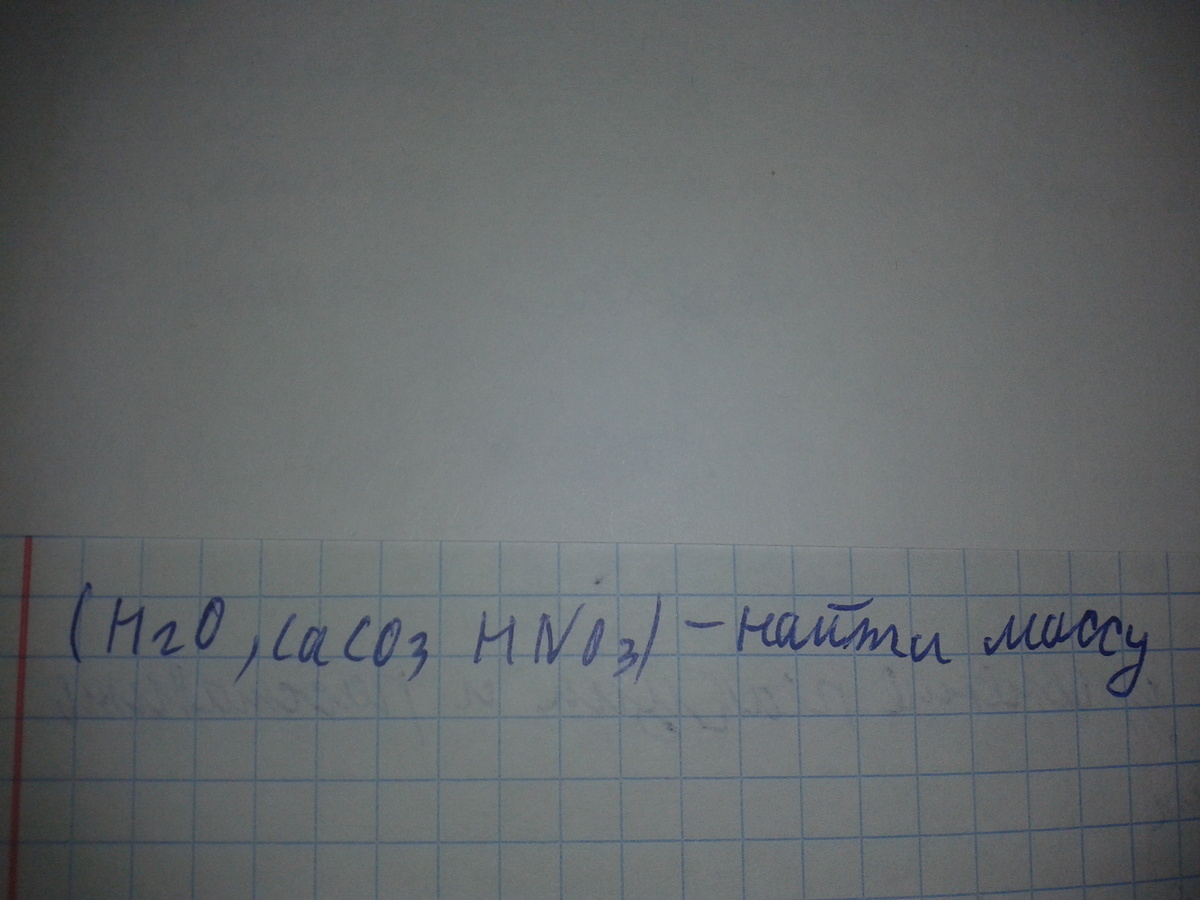 (H₂O, CaCO₃ HNO₃) – найти массу